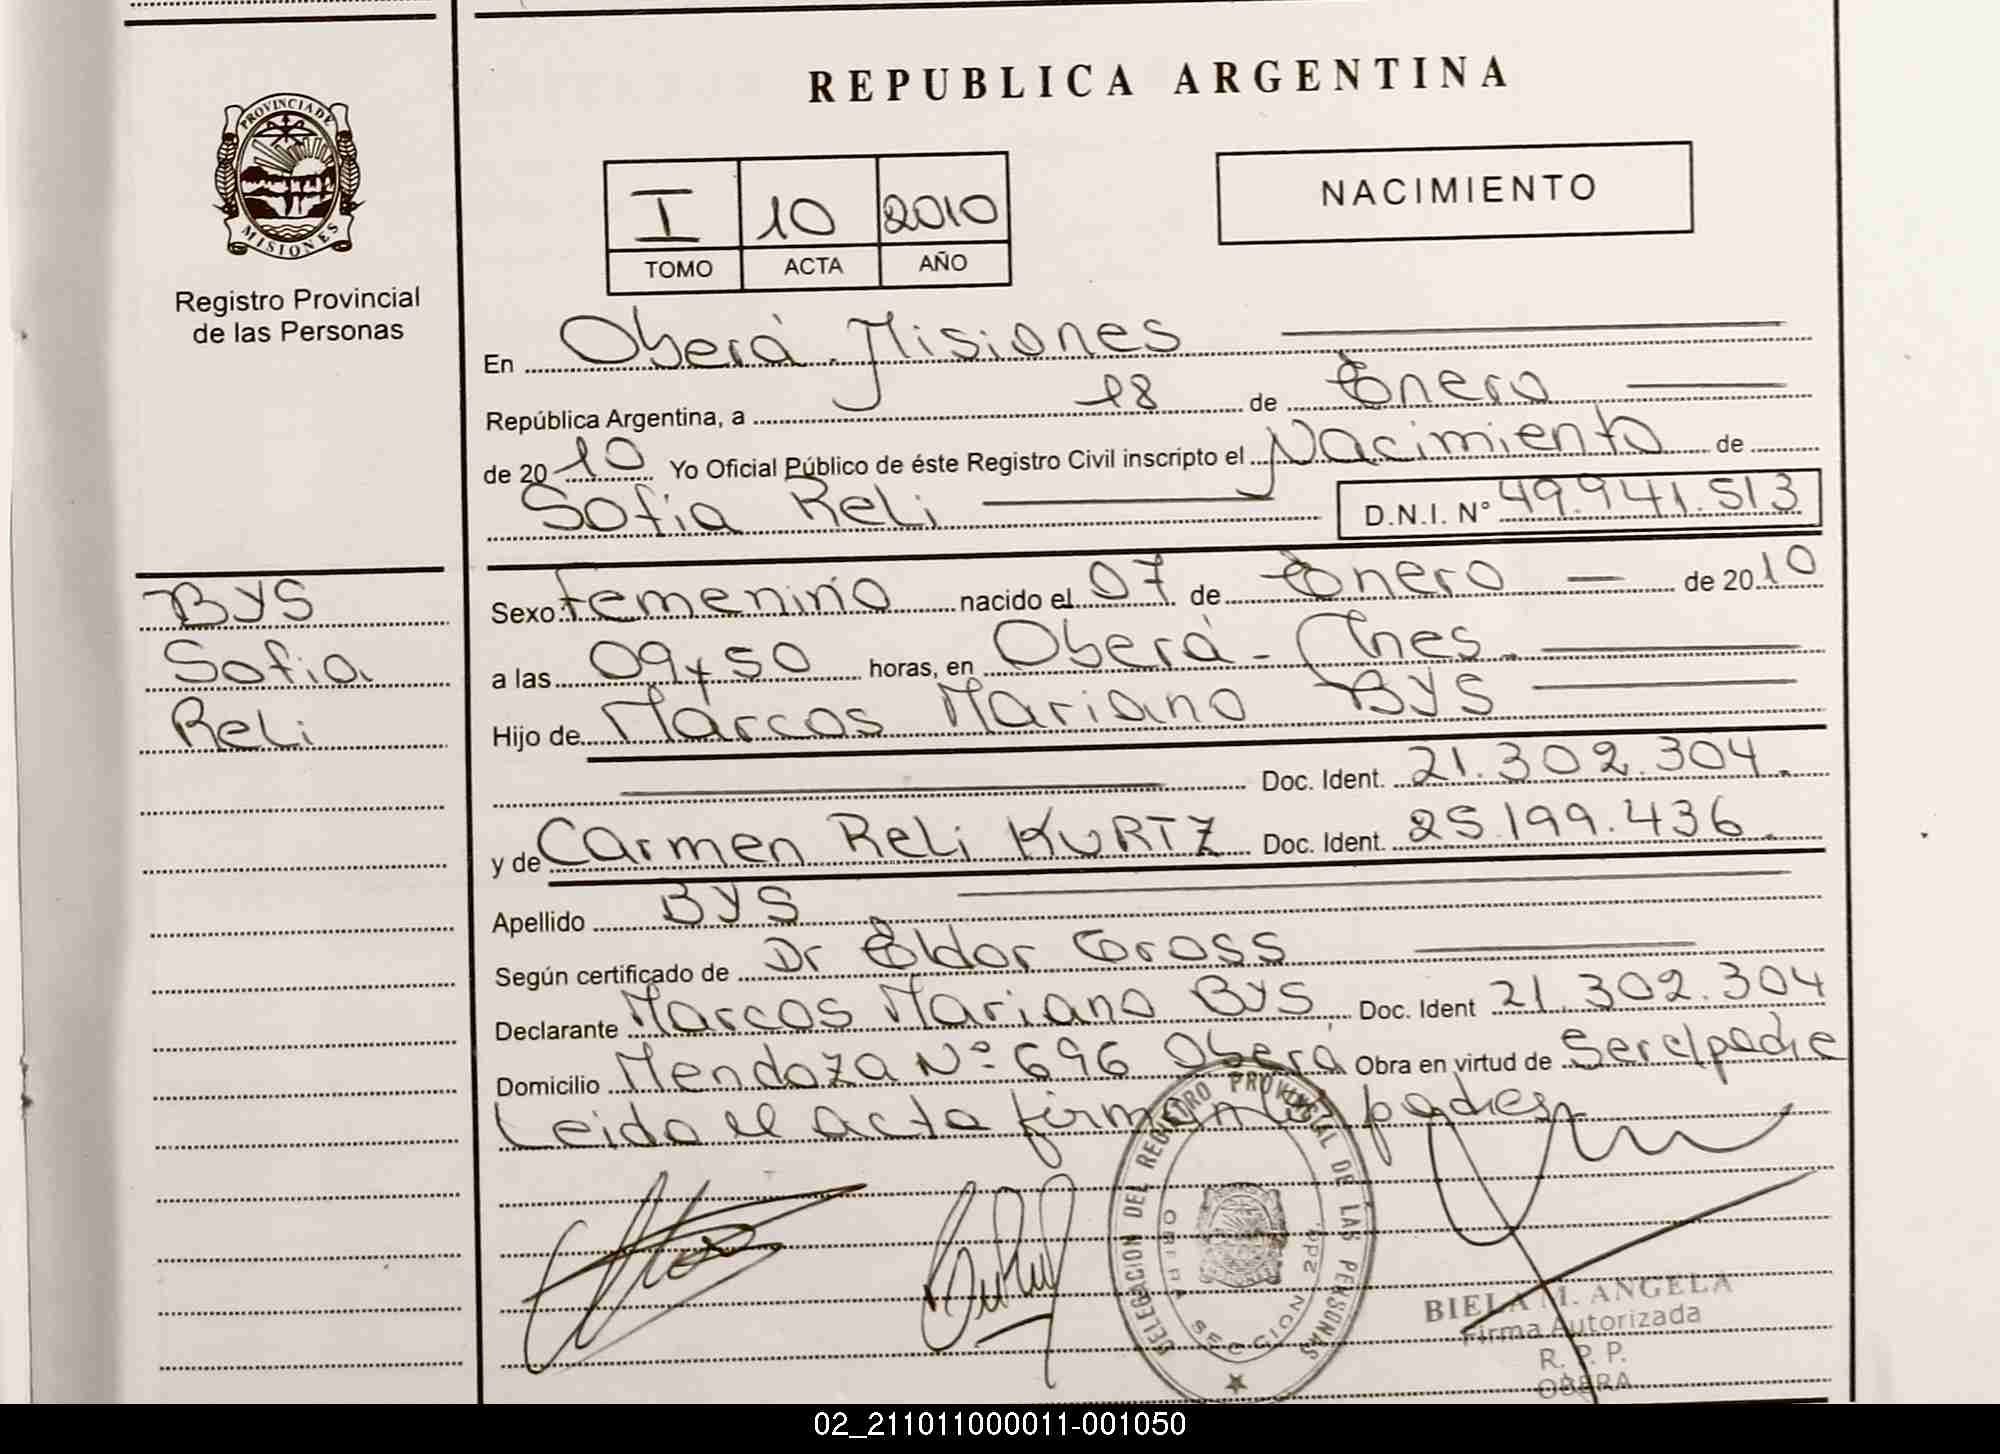 REPUBLICA ARGENTINA
PROVINCIA DE
MISIONES
Registro Provincial
de las Personas
I 10 2010
TOMO ACTA AÑO
NACIMIENTO
En Oberá Misiones
República Argentina, a 18 de Enero
de 2010 Yo Oficial Público de éste Registro Civil inscripto el Nacimiento de
Sofia Reli D.N.I. N° 49.941.513
BYS
Sofia
Reli
Sexo: femenino nacido el 07 de Enero de 2010
a las 09 y 50 horas, en Oberá - Mnes.
Hijo de Marcos Mariano BYS
Doc. Ident. 21.302.304.
y de Carmen Reli KURTZ Doc. Ident. 25.199.436.
Apellido BYS
Según certificado de Dr Eldor Gross
Declarante Marcos Mariano BYS Doc. Ident 21.302.304
Domicilio Mendoza Nº 696 Oberá Obra en virtud de Ser el padre
Leida el acta firman los padres
DELEGACION DEL REGISTRO PROVINCIAL DE LAS PERSONAS
OBERA SECCION 2DA.
BIELA M. ANGELA
Firma Autorizada
R. P. P.
OBERA
02_211011000011-001050